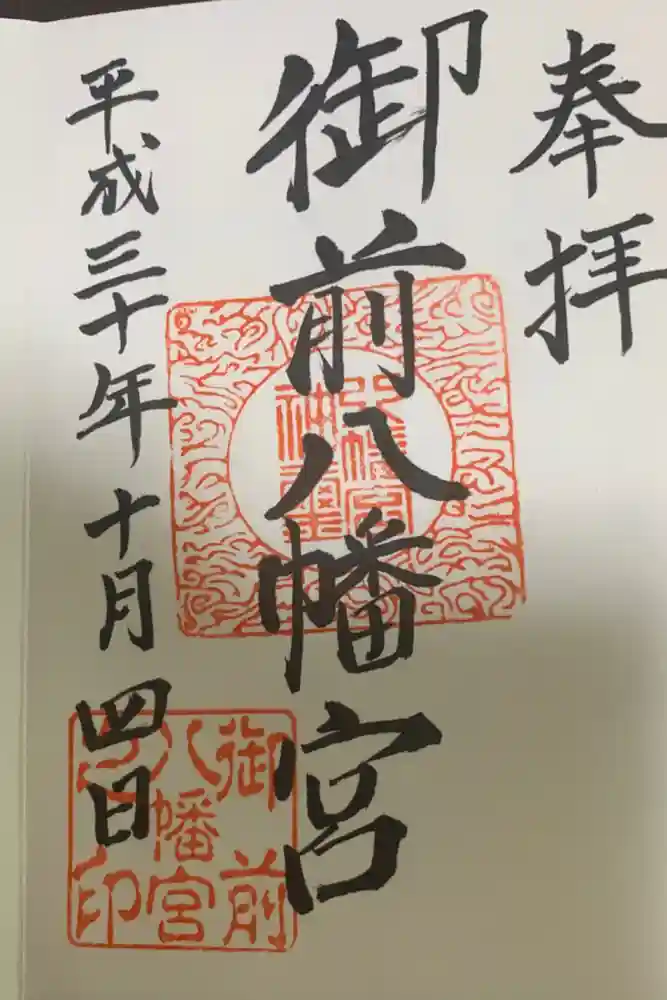 奉拝
御前八幡宮
平成三十年十月四日
御前
八幡宮
印